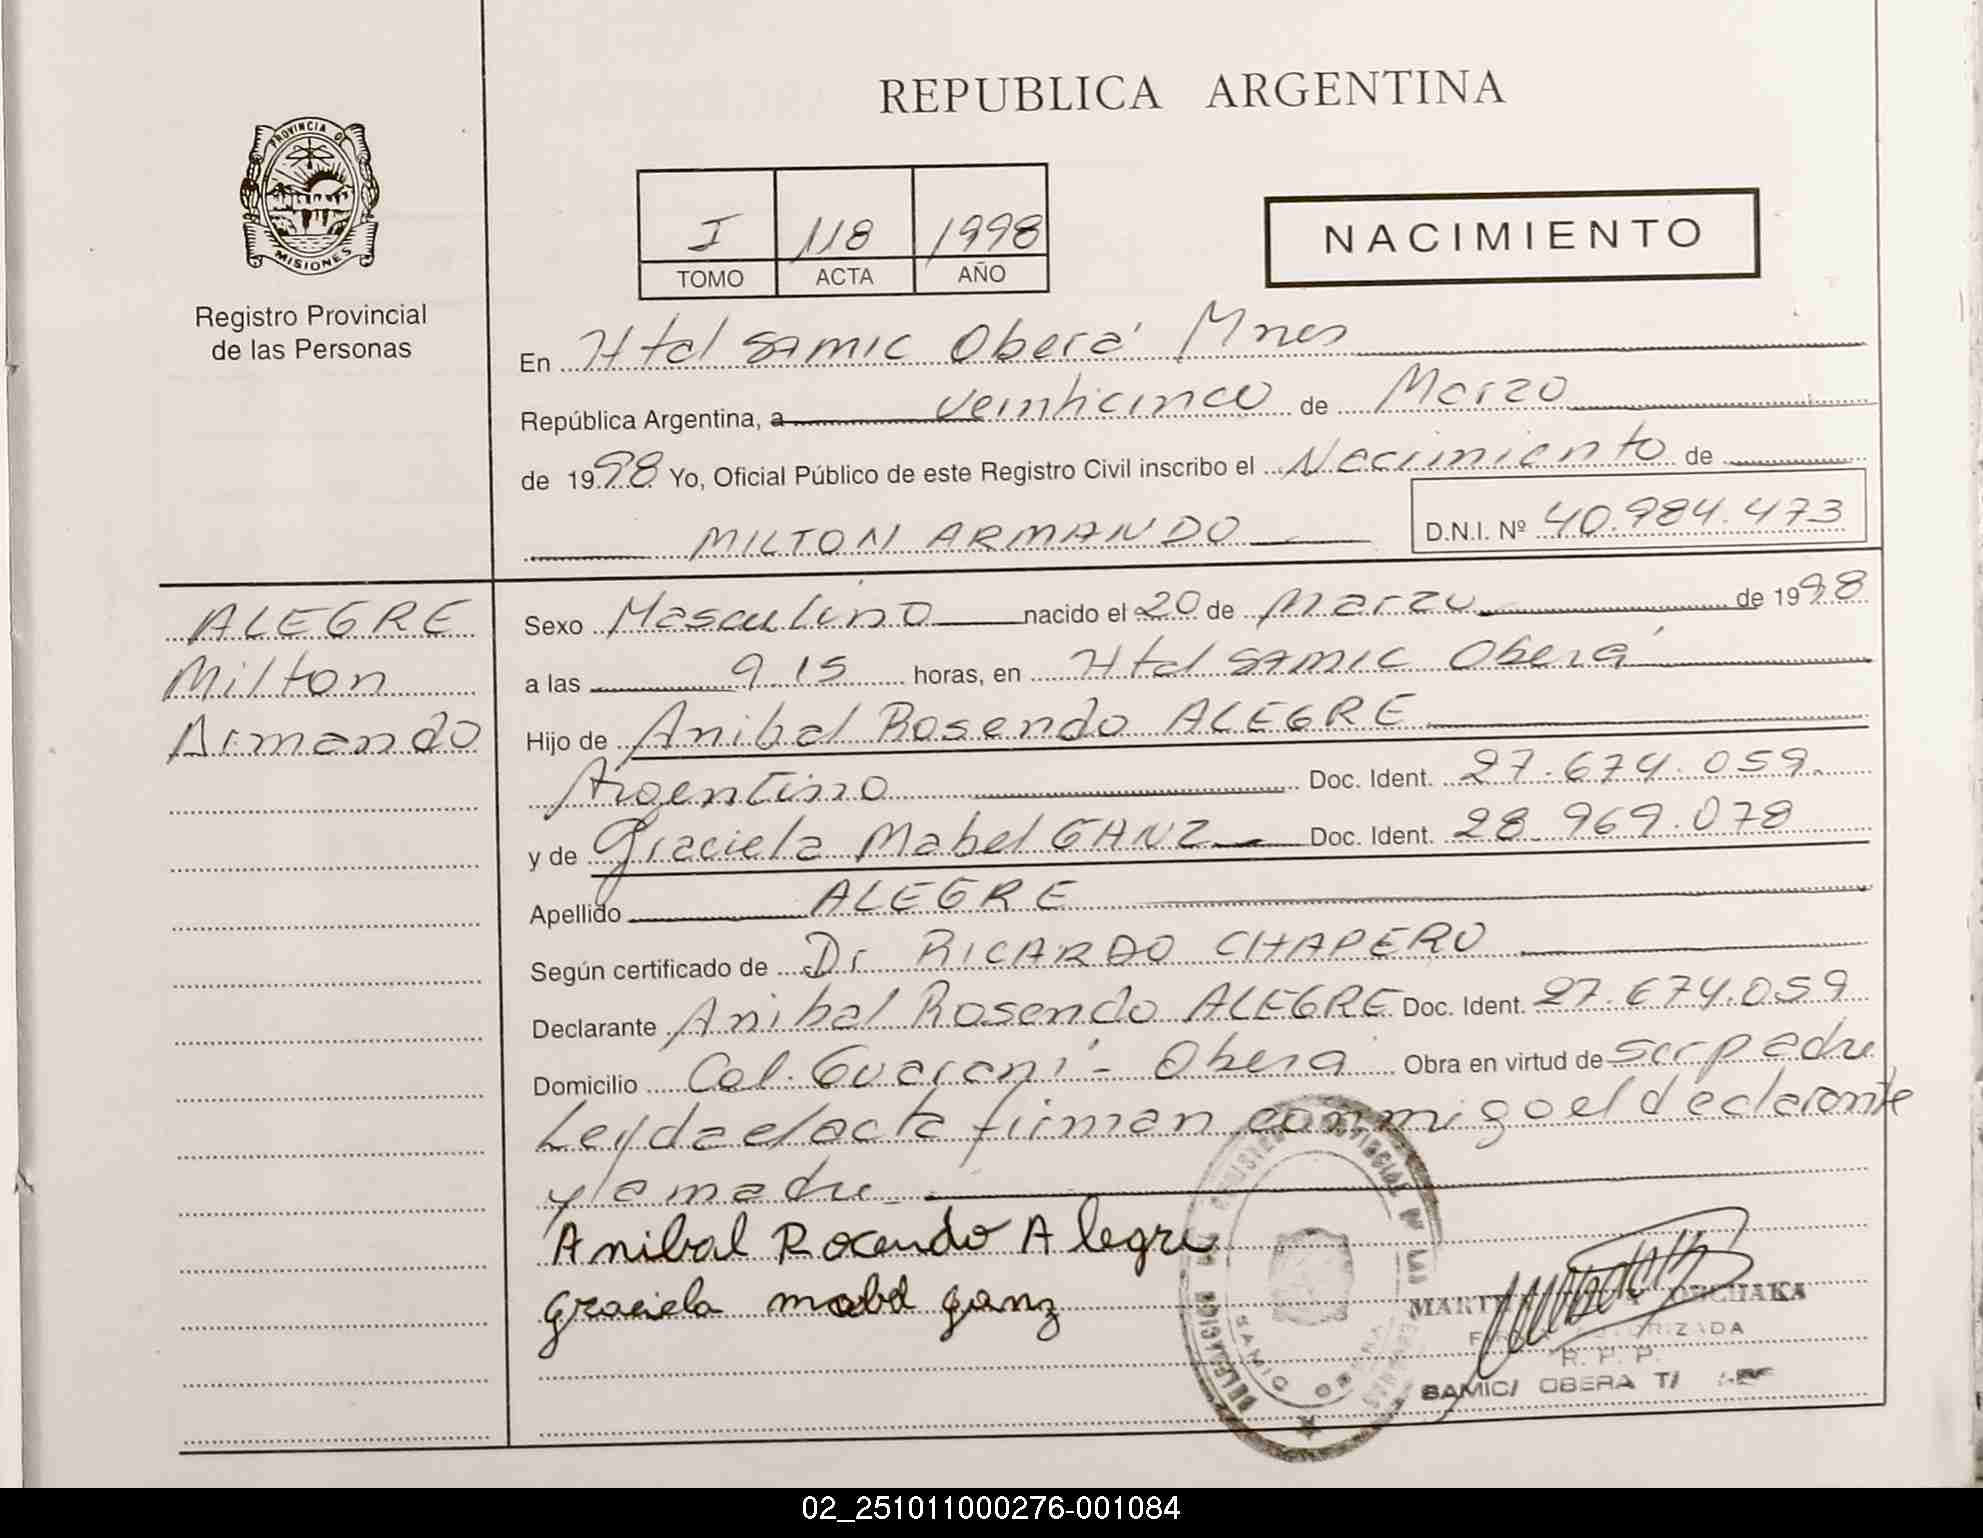 REPUBLICA ARGENTINA
PROVINCIA DE
MISIONES
Registro Provincial
de las Personas
I 118 1998
TOMO ACTA AÑO
NACIMIENTO
En Htal SAMIC Oberá Mnes
República Argentina, a veinticinco de Marzo
de 1998 Yo, Oficial Público de este Registro Civil inscribo el Nacimiento de
MILTON ARMANDO D.N.I. Nº 40.984.473
ALEGRE
Milton
Armando
Sexo Masculino nacido el 20 de Marzo de 1998
a las 9.15 horas, en Htal SAMIC Oberá
Hijo de Anibal Rosendo ALEGRE
Argentino Doc. Ident. 27.674.059.
y de Graciela Mabel GANZ Doc. Ident. 28.969.078
Apellido ALEGRE
Según certificado de Dr RICARDO CHAPERO
Declarante Anibal Rosendo ALEGRE Doc. Ident. 27.674.059
Domicilio Col. Guaraní - Oberá Obra en virtud de ser padre
Leyda el acta firman conmigo el declarante
y la madre
Anibal Rocendo Alegre
Graciela mabel ganz
SAMIC OBERA
R. P. P.
SAMIC/ OBERA T/
02_251011000276-001084